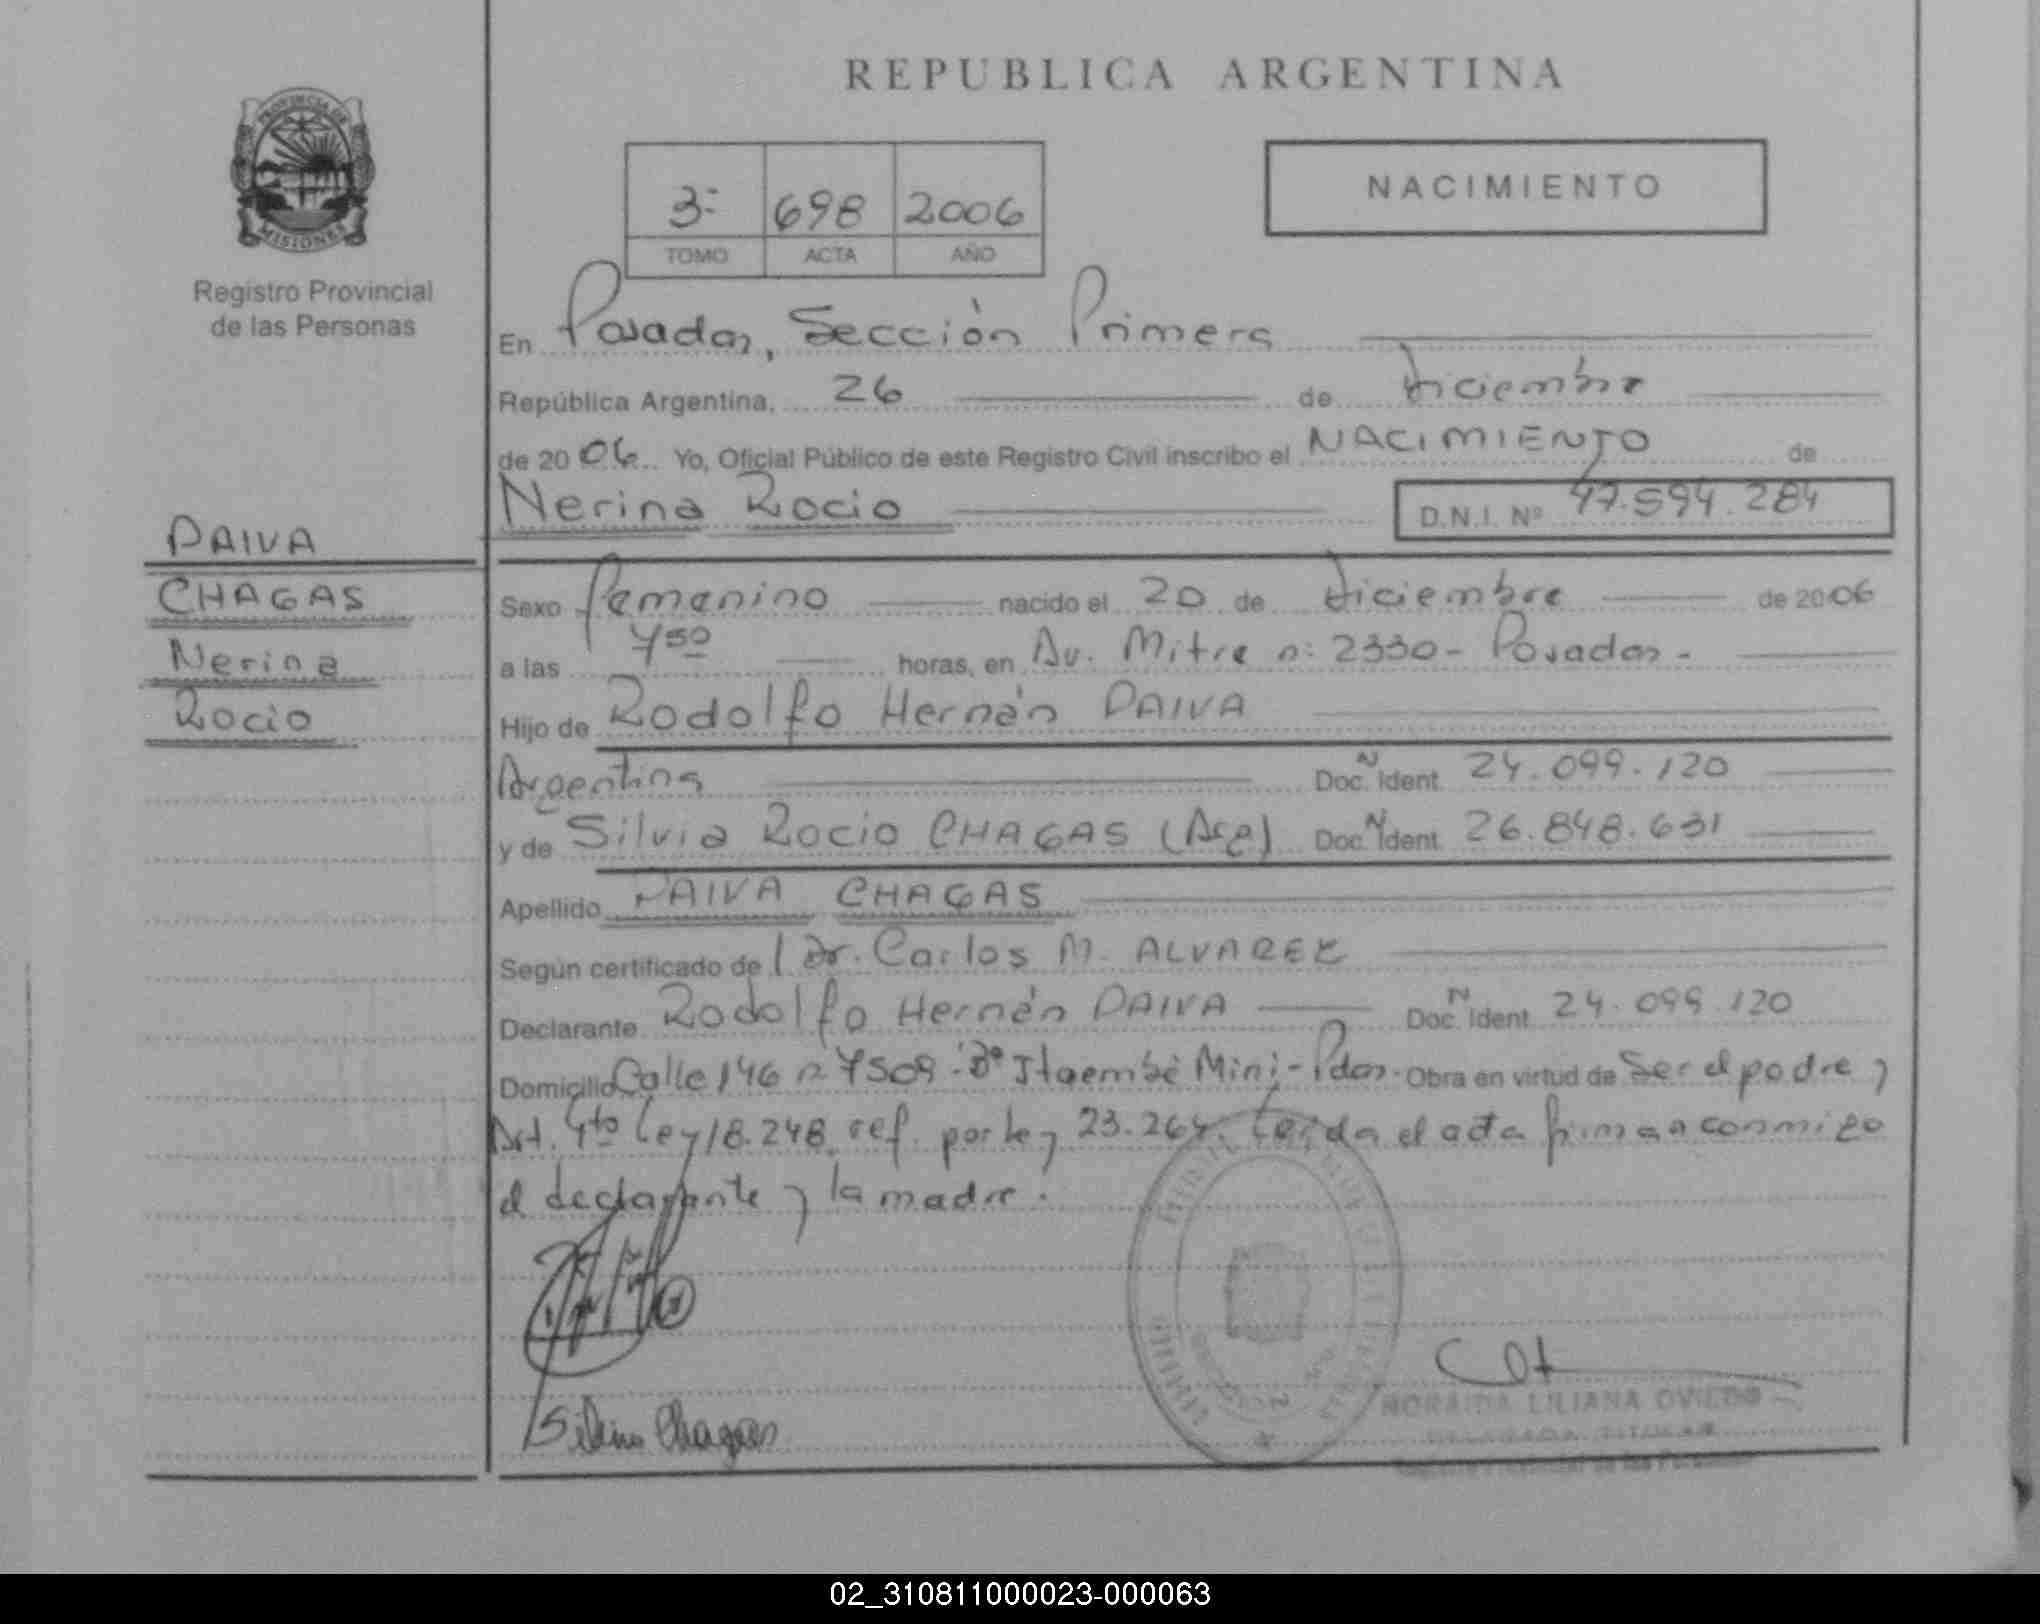 REPUBLICA ARGENTINA
PROVINCIA DE
MISIONES
Registro Provincial
de las Personas
3- 698 2006
TOMO ACTA AÑO
NACIMIENTO
En Posadas, Sección Primera
República Argentina, 26 de Diciembre
de 2006 Yo, Oficial Público de este Registro Civil inscribo el NACIMIENTO de
Nerina Rocio D.N.I. Nº 47.594.284
PAIVA
CHAGAS
Nerina
Rocio
Sexo femenino nacido el 20 de diciembre de 2006
a las 7 50 horas, en Av. Mitre n: 2330 - Posadas -
Hijo de Rodolfo Hernán PAIVA
Argentina Doc. N Ident. 24.099.120
y de Silvia Rocio CHAGAS (Arg) Doc. N Ident. 26.848.631
Apellido PAIVA CHAGAS
Según certificado de Dr. Carlos M. ALVAREZ
Declarante Rodolfo Hernán PAIVA Doc. N Ident. 24.099.120
Domicilio Calle 146 n 7509 - Bº Itaembé Mini - Pdas. Obra en virtud de Ser el padre y
Art. 4to Ley 18.248 ref. por ley 23.264. Leída el acta firman conmigo
el declarante y la madre.
Silvia Chagas
NORAIDA LILIANA OVIEDO
DELEGADA TITULAR
Registro Provincial de las Personas
02_310811000023-000063